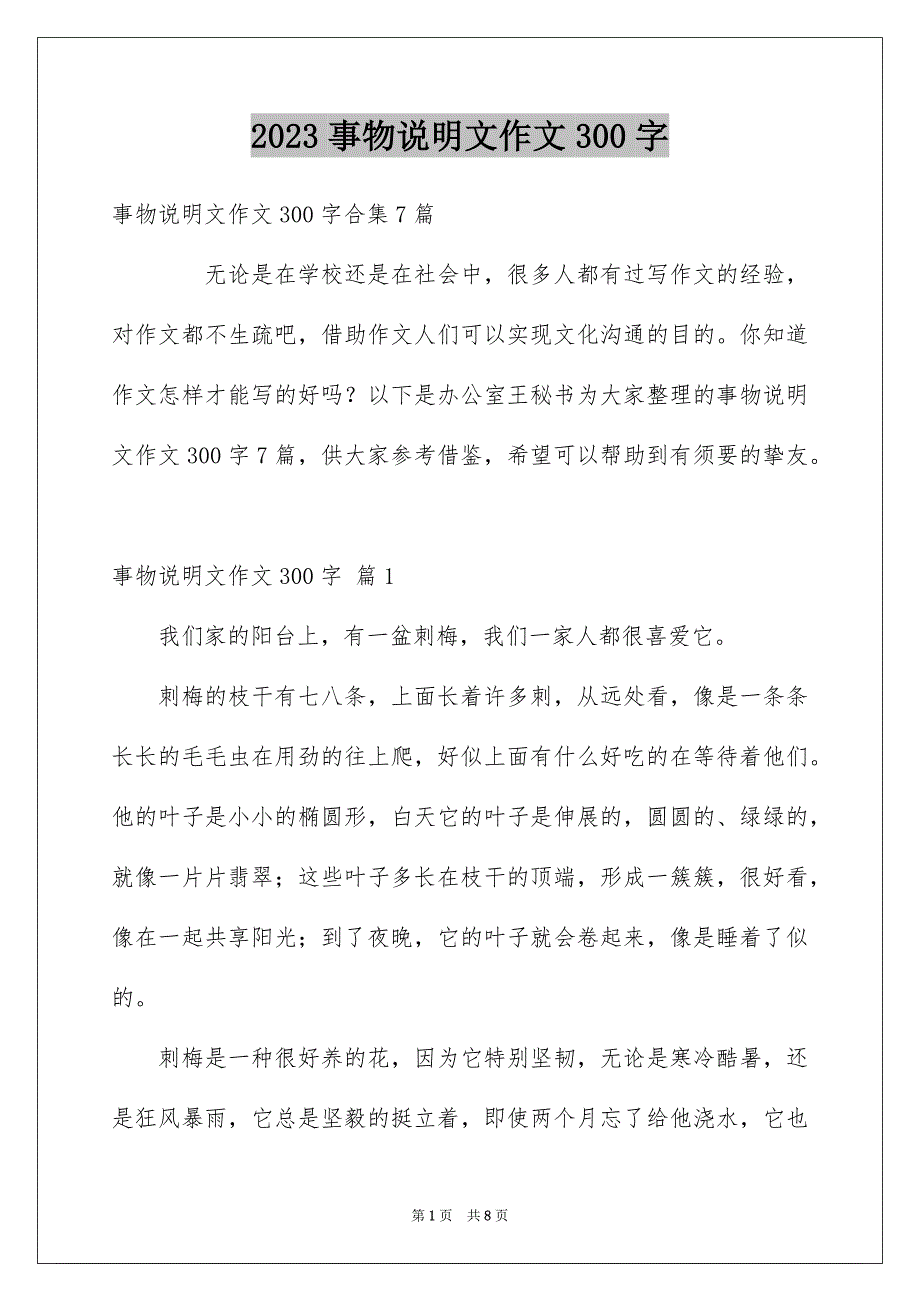 2023事物说明文作文300字
事物说明文作文300字合集7篇
无论是在学校还是在社会中，很多人都有过写作文的经验，
对作文都不生疏吧，借助作文人们可以实现文化沟通的目的。你知道
作文怎样才能写的好吗？以下是办公室王秘书为大家整理的事物说明
文作文300字7篇，供大家参考借鉴，希望可以帮助到有须要的挚友。
事物说明文作文300字 篇1
我们家的阳台上，有一盆刺梅，我们一家人都很喜爱它。
刺梅的枝干有七八条，上面长着许多刺，从远处看，像是一条条
长长的毛毛虫在用劲的往上爬，好似上面有什么好吃的在等待着他们。
他的叶子是小小的椭圆形，白天它的叶子是伸展的，圆圆的、绿绿的，
就像一片片翡翠；这些叶子多长在枝干的顶端，形成一簇簇，很好看，
像在一起共享阳光；到了夜晚，它的叶子就会卷起来，像是睡着了似
的。
刺梅是一种很好养的花，因为它特别坚韧，无论是寒冷酷暑，还
是狂风暴雨，它总是坚毅的挺立着，即使两个月忘了给他浇水，它也
第1页 共8页